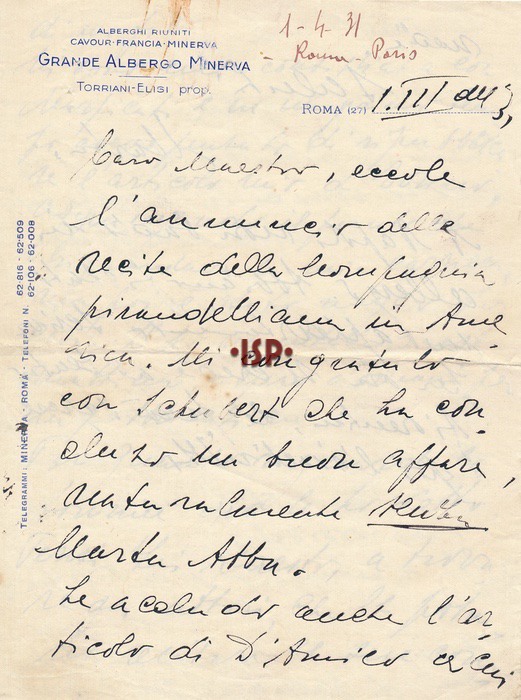 ALBERGHI RIUNITI
CAVOUR-FRANCIA-MINERVA
GRANDE ALBERGO MINERVA
TORRIANI-ELISI prop.
1-4-31
- Roma - Paris
ROMA (27) 1. III
TELEGRAMMI: MINERVA - ROMA - TELEFONI N. 62-816 - 62-509
62-106 - 62-008
Caro Maestro, eccole
l'annuncio delle
recite della Compagnia
pirandelliana in Ame
rica. Mi congratulo
·ISP·
con Schubert che ha con-
cluso un buon affare,
naturalmente senza
Marta Abba.
Le accludo anche l'ar-
ticolo di D'Amico